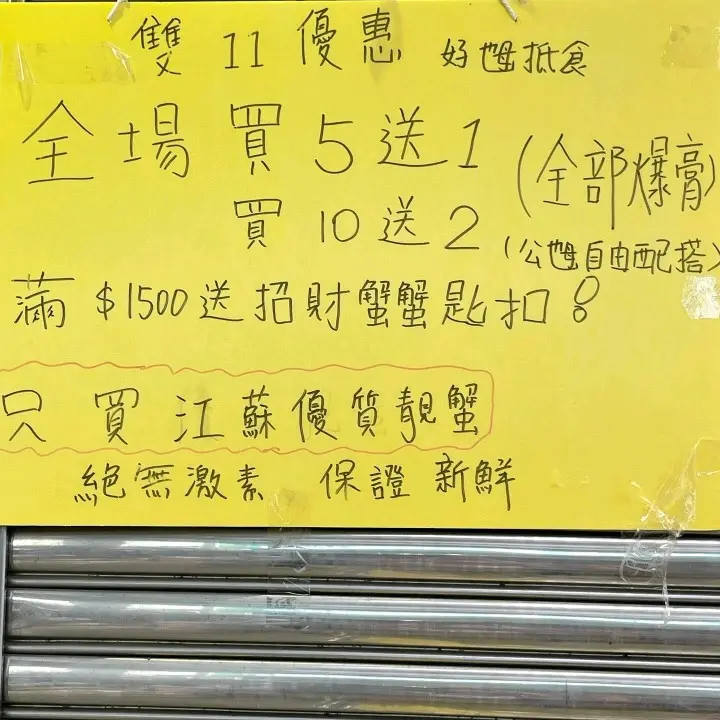 雙 11 優惠 好乸抵食
全場買5送1 (全部爆膏)
買10送2 (公乸自由配搭)
滿$1500送招財蟹蟹匙扣!
只買江蘇優質靚蟹
絕無激素 保證新鮮